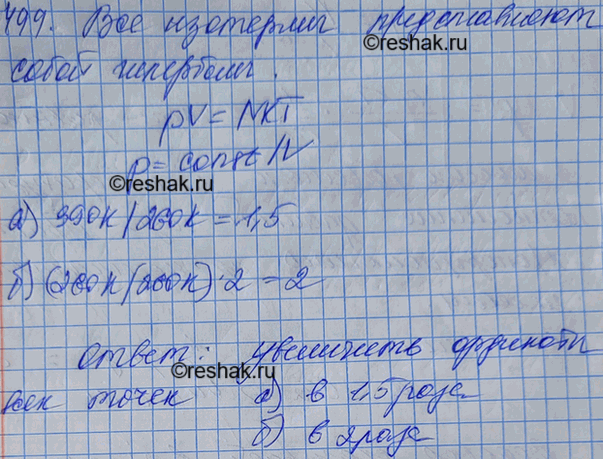 499. Все изотермы представляют
©reshak.ru
собой гиперболы.
pV = NKT
p = const/V
©reshak.ru
а) 390К/260К = 1,5
б) (260К/260К)·2 = 2
Ответ: увеличить ординаты
©reshak.ru
всех точек а) в 1,5 раза
б) в 2 раза